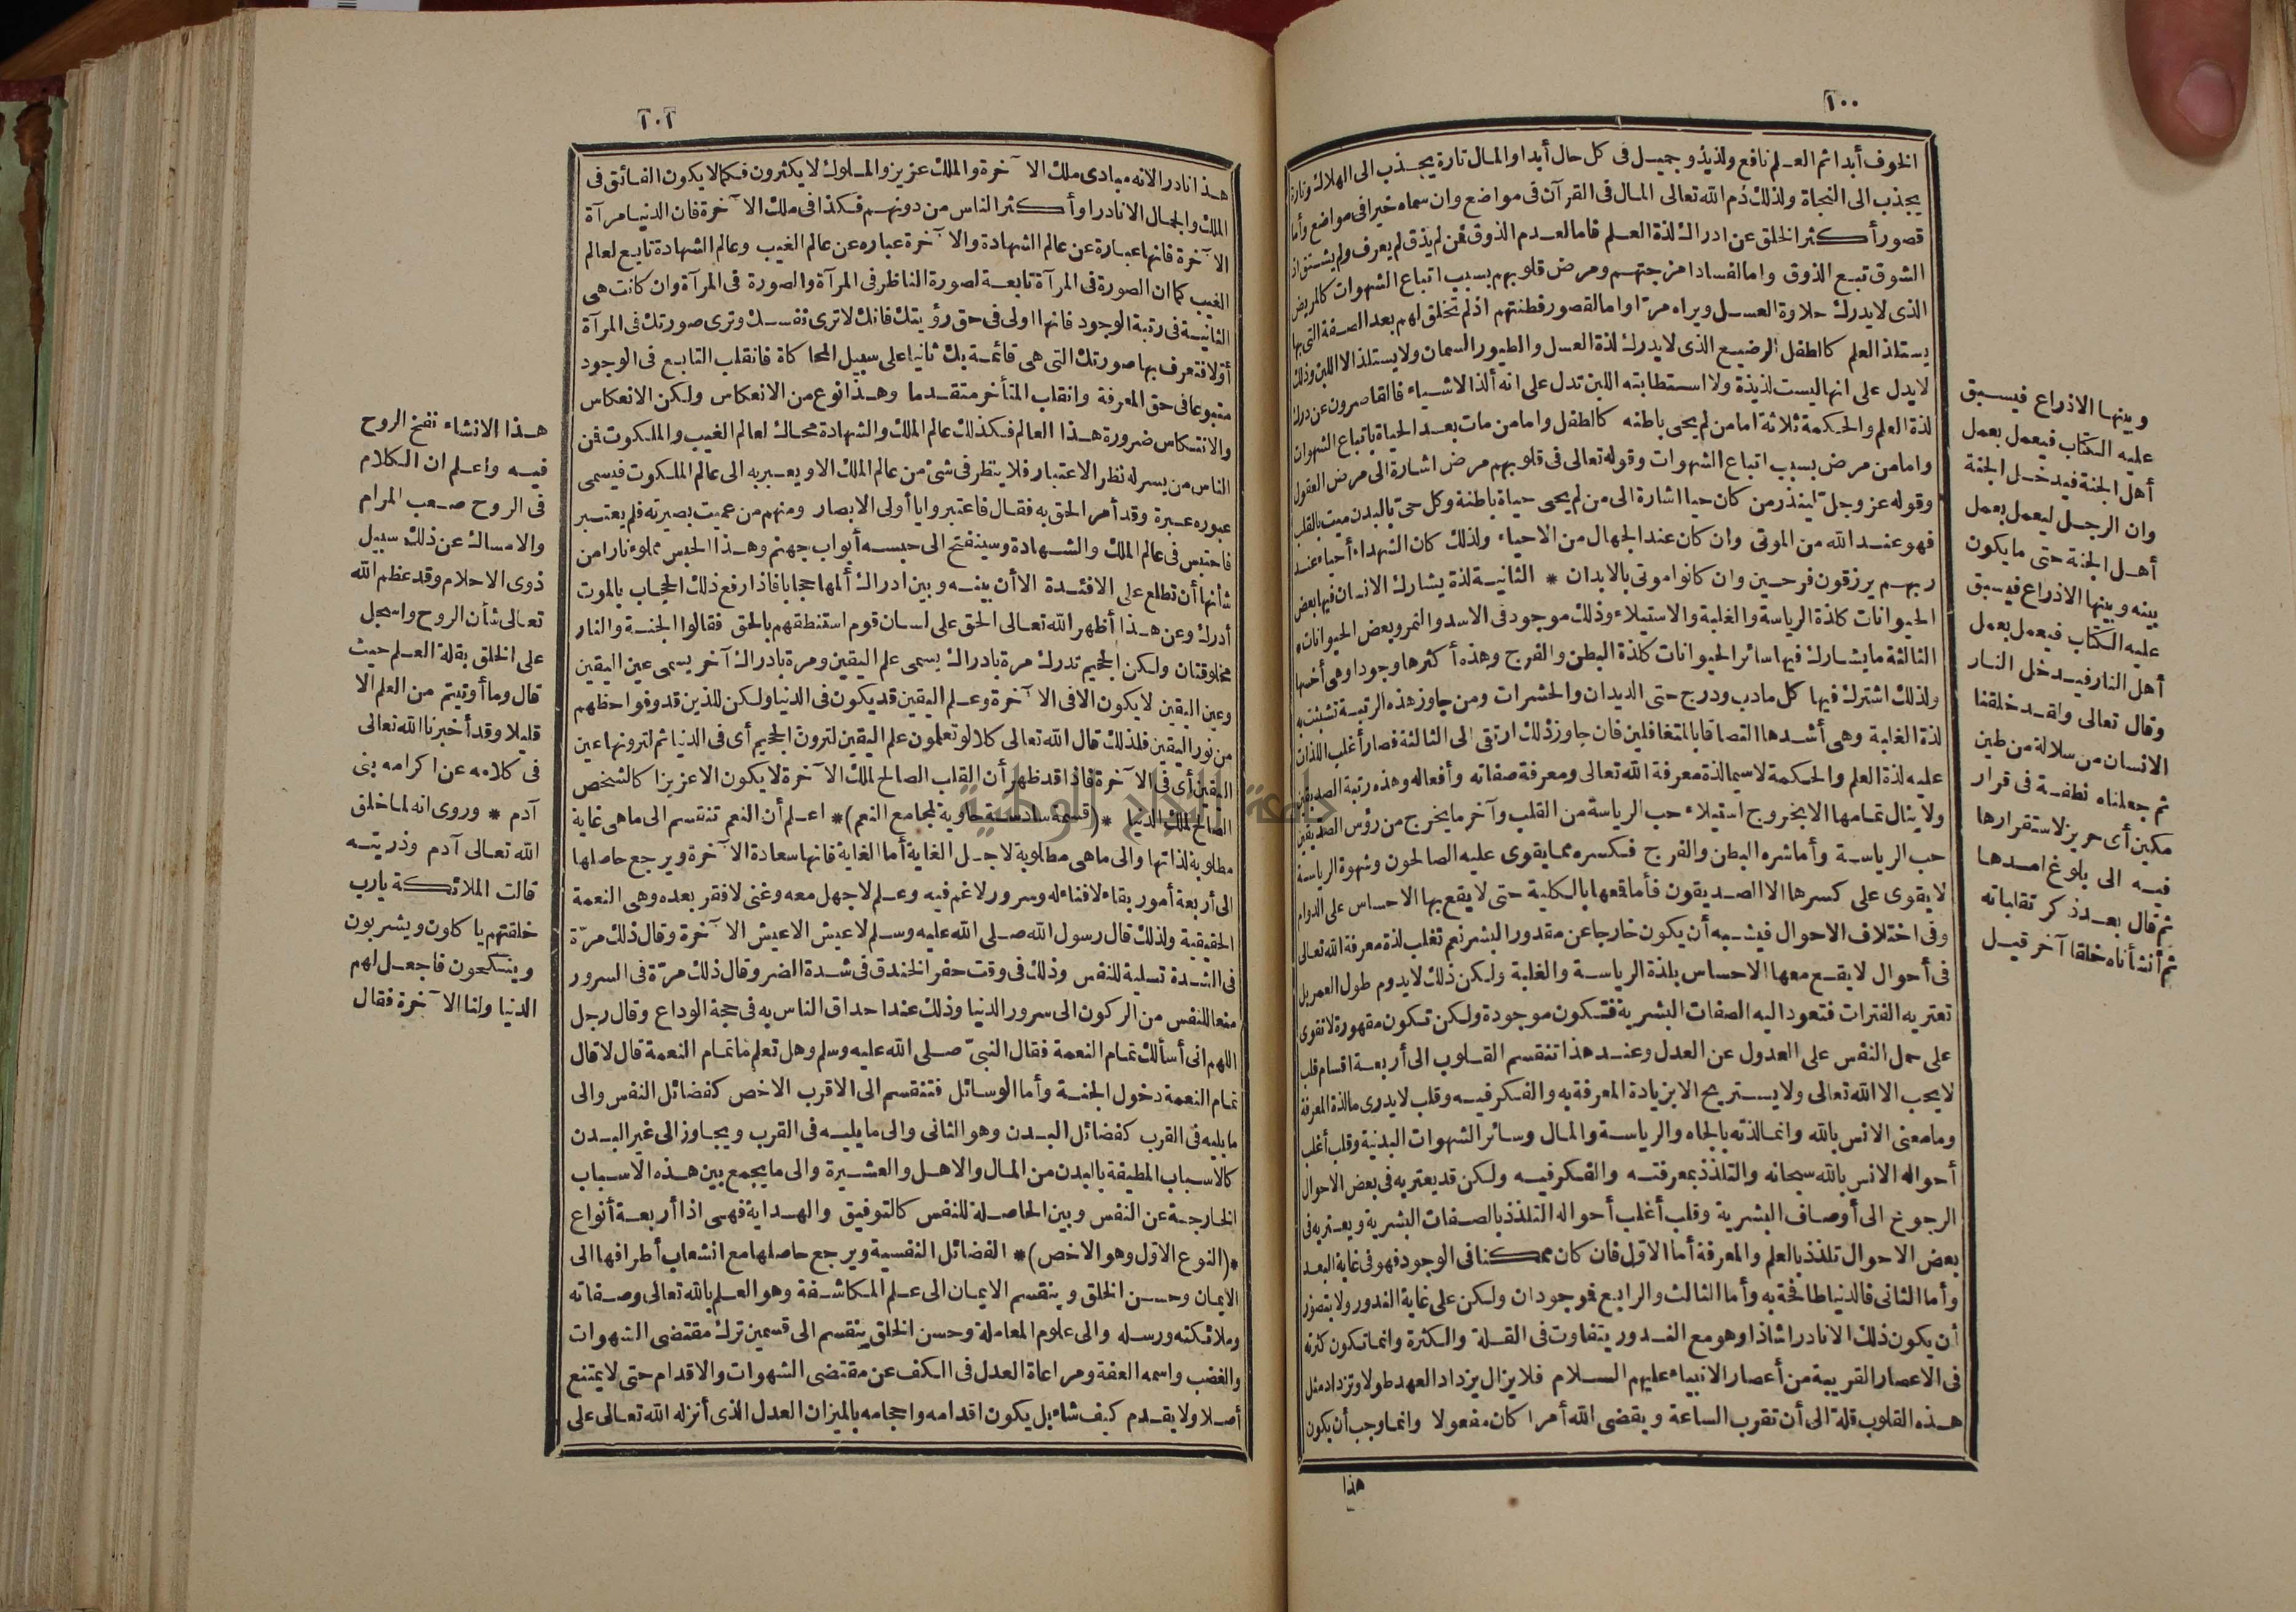 ١٠٠
الخوف أبدا ثم العلم نافع ولذيذ وجميل فى كل حال أبدا والمال تارة يجذب الى الهلاك وتارة
يجذب الى النجاة ولذلك ذم الله تعالى المال فى القرآن فى مواضع وان سماه خيرا فى مواضع وأما
قصور أكثر الخلق عن ادراك لذة العلم فاما لعدم الذوق فمن لم يذق لم يعرف ولم يشتق اذ
الشوق تبع الذوق واما لفساد امزجتهم ومرض قلوبهم بسبب اتباع الشهوات كالمريض
الذى لا يدرك حلاوة العسل ويراه مرّا واما لقصور فطنتهم اذ لم تخلق لهم بعد الصفة التى بها
يستلذ العلم كالطفل الرضيع الذى لا يدرك لذة العسل والطيور السمان ولا يستلذ الا اللبن وذلك
لا يدل على انها ليست لذيذة ولا استطابته اللبن تدل على انه ألذ الاشياء فالقاصرون عن درك
لذة العلم والحكمة ثلاثة امامن لم يحى باطنه كالطفل وامامن مات بعد الحياة باتباع الشهوات
وامامن مرض بسبب اتباع الشهوات وقوله تعالى فى قلوبهم مرض اشارة الى مرض العقول
وقوله عز وجل لينذر من كان حيا اشارة الى من لم يحى حياة باطنة وكل حى بالبدن ميت بالقلب
فهو عند الله من الموتى وان كان عند الجهال من الاحياء ولذلك كان الشهداء أحياء عند
ربهم يرزقون فرحين وان كانوا موتى بالابدان * الثانية لذة يشارك الانسان فيها بعض
الحيوانات كلذة الرياسة والغلبة والاستيلاء وذلك موجود فى الاسد والنمر وبعض الحيوانات
الثالثة ما يشارك فيها سائر الحيوانات كلذة البطن والفرج وهذه أكثرها وجودا وهى أخسها
ولذلك اشترك فيها كل مادب ودرج حتى الديدان والحشرات ومن جاوز هذه الرتبة تشبثت به
لذة الغلبة وهى أشدها التصاقا بالمتغافلين فان جاوز ذلك ارتقى الى الثالثة فصار أغلب اللذات
عليه لذة العلم والحكمة لاسيما لذة معرفة الله تعالى ومعرفة صفاته وأفعاله وهذه رتبة الصديقين
ولا ينال تمامها الا بخروج استيلاء حب الرياسة من القلب وآخر ما يخرج من رؤس الصديقين
حب الرياسة وأما شره البطن والفرج فكسره مما يقوى عليه الصالحون وشهوة الرياسة
لا يقوى على كسرها الا الصديقون فأما قمعها بالكلية حتى لا يقع بها الاحساس على الدوام
وفى اختلاف الاحوال فيشبه أن يكون خارجا عن مقدور البشر نعم تغلب لذة معرفة الله تعالى
فى أحوال لا يقع معها الاحساس بلذة الرياسة والغلبة ولكن ذلك لا يدوم طول العمر بل
تعتريه الفترات فتعود اليه الصفات البشرية فتكون موجودة ولكن تكون مقهورة لا تقوى
على حمل النفس على العدول عن العدل وعند هذا تنقسم القلوب الى أربعة اقسام قلب
لا يحب الا الله تعالى ولا يستريح الا بزيادة المعرفة به والفكر فيه وقلب لا يدرى ما لذة المعرفة
وما معنى الانس بالله وانما لذته بالجاه والرياسة والمال وسائر الشهوات البدنية وقلب أغلب
أحواله الانس بالله سبحانه والتلذذ بمعرفته والفكر فيه ولكن قد يعتريه فى بعض الاحوال
الرجوع الى أوصاف البشرية وقلب أغلب أحواله التلذذ بالصفات البشرية ويعتريه فى
بعض الاحوال تلذذ بالعلم والمعرفة أما الاول فان كان ممكنا فى الوجود فهو فى غاية البعد
وأما الثانى فالدنيا طافحة به وأما الثالث والرابع فموجودان ولكن على غاية الندور ولا يتصور
أن يكون ذلك الا نادرا شاذا وهو مع الندور يتفاوت فى القلة والكثرة وانما تكون كثرته
فى الاعصار القريبة من أعصار الانبياء عليهم السلام فلا يزال يزداد العهد طولا وتزداد مثل
هذه القلوب قلة الى أن تقرب الساعة ويقضى الله أمرا كان مفعولا وانما وجب أن يكون
هذا
وبينها الاذراع فيسبق
عليه الكتاب فيعمل بعمل
أهل الجنة فيدخل الجنة
وان الرجل ليعمل بعمل
أهل الجنة حتى ما يكون
بينه وبينها الاذراع فيسبق
عليه الكتاب فيعمل بعمل
أهل النار فيدخل النار
وقال تعالى ولقد خلقنا
الانسان من سلالة من طين
ثم جعلناه نطفة فى قرار
مكين أى حريز لاستقرارها
فيه الى بلوغ امدها
ثم قال بعد ذكر تقلباته
ثم أنشأناه خلقا آخر قيل
١٠١
هذا نادرا لانه مبادى ملك الآخرة والملك عزيز والملوك لا يكثرون فكما لا يكون الفائق فى
الملك والجمال الا نادرا وأكثر الناس من دونهم فكذا فى ملك الآخرة فان الدنيا مرآة
الآخرة فانها عبارة عن عالم الشهادة والآخرة عباره عن عالم الغيب وعالم الشهادة تابع لعالم
الغيب كما ان الصورة فى المرآة تابعة لصورة الناظر فى المرآة والصورة فى المرآة وان كانت هى
الثانية فى رتبة الوجود فانها اولى فى حق رؤيتك فانك لا ترى نفسك وترى صورتك فى المرآة
أوّلا فتعرف بها صورتك التى هى قائمة بك ثانيا على سبيل المحاكاة فانقلب التابع فى الوجود
متبوعا فى حق المعرفة وانقلب المتأخر متقدما وهذا نوع من الانعكاس ولكن الانعكاس
والانتكاس ضرورة هذا العالم فكذلك عالم الملك والشهادة محاك لعالم الغيب والملكوت فمن
الناس من يسر له نظر الاعتبار فلا ينظر فى شئ من عالم الملك الا ويعبر به الى عالم الملكوت فيسمى
عبوره عبرة وقد أمر الحق به فقال فاعتبروا يا أولى الابصار ومنهم من عميت بصيرته فلم يعتبر
فاحتبس فى عالم الملك والشهادة وسينفتح الى حبسه أبواب جهنم وهذا الحبس مملوء نارا من
شأنها أن تطلع على الافئدة الا أن بينه وبين ادراك ألمها حجابا فاذا رفع ذلك الحجاب بالموت
أدرك وعن هذا أظهر الله تعالى الحق على لسان قوم استنطقهم بالحق فقالوا الجنة والنار
مخلوقتان ولكن الجحيم تدرك مرة بادراك يسمى علم اليقين ومرة بادراك آخر يسمى عين اليقين
وعين اليقين لا يكون الا فى الآخرة وعلم اليقين قد يكون فى الدنيا ولكن للذين قد وفوا حظهم
من نور اليقين فلذلك قال الله تعالى كلا لو تعلمون علم اليقين لترون الجحيم أى فى الدنيا ثم لترونها عين
اليقين أى فى الآخرة فاذا قد ظهر أن القلب الصالح لملك الآخرة لا يكون الا عزيزا كالشخص
الصالح لملك الدنيا *(قسمة سادسة حاوية لمجامع النعم)* اعلم أن النعم تنقسم الى ما هى غاية
مطلوبة لذاتها والى ما هى مطلوبة لاجل الغاية أما الغاية فانها سعادة الآخرة ويرجع حاصلها
الى أربعة أمور بقاء لا فناء له وسرور لا غم فيه وعلم لا جهل معه وغنى لا فقر بعده وهى النعمة
الحقيقية ولذلك قال رسول الله صلى الله عليه وسلم لا عيش الا عيش الآخرة وقال ذلك مرّة
فى الشدة تسلية للنفس وذلك فى وقت حفر الخندق فى شدة الضر وقال ذلك مرّة فى السرور
منعا للنفس من الركون الى سرور الدنيا وذلك عند احداق الناس به فى حجة الوداع وقال رجل
اللهم انى أسألك تمام النعمة فقال النبىّ صلى الله عليه وسلم وهل تعلم ما تمام النعمة قال لا قال
تمام النعمة دخول الجنة وأما الوسائل فتنقسم الى الاقرب الاخص كفضائل النفس والى
ما يليه فى القرب كفضائل البدن وهو الثانى والى ما يليه فى القرب ويجاوز الى غير البدن
كالاسباب المطيفة بالبدن من المال والاهل والعشيرة والى ما يجمع بين هذه الاسباب
الخارجة عن النفس وبين الحاصلة للنفس كالتوفيق والهداية فهى اذا أربعة أنواع
*(النوع الاوّل وهو الاخص)* الفضائل النفسية ويرجع حاصلها مع انشعاب أطرافها الى
الايمان وحسن الخلق وينقسم الايمان الى علم المكاشفة وهو العلم بالله تعالى وصفاته
وملائكته ورسله والى علوم المعاملة وحسن الخلق ينقسم الى قسمين ترك مقتضى الشهوات
والغضب واسمه العفة ومراعاة العدل فى الكف عن مقتضى الشهوات والاقدام حتى لا يمتنع
أصلا ولا يقدم كيف شاء بل يكون اقدامه واحجامه بالميزان العدل الذى أنزله الله تعالى على
هذا الانشاء نفخ الروح
فيه واعلم ان الكلام
فى الروح صعب المرام
والامساك عن ذلك سبيل
ذوى الاحلام وقد عظم الله
تعالى شأن الروح واسجل
على الخلق بقلة العلم حيث
قال وما أوتيتم من العلم الا
قليلا وقد أخبرنا الله تعالى
فى كلامه عن اكرامه بنى
آدم * وروى انه لما خلق
الله تعالى آدم وذريته
قالت الملائكة يارب
خلقتهم يأكلون ويشربون
وينكحون فاجعل لهم
الدنيا ولنا الآخرة فقال
جامعة النجاح الوطنية